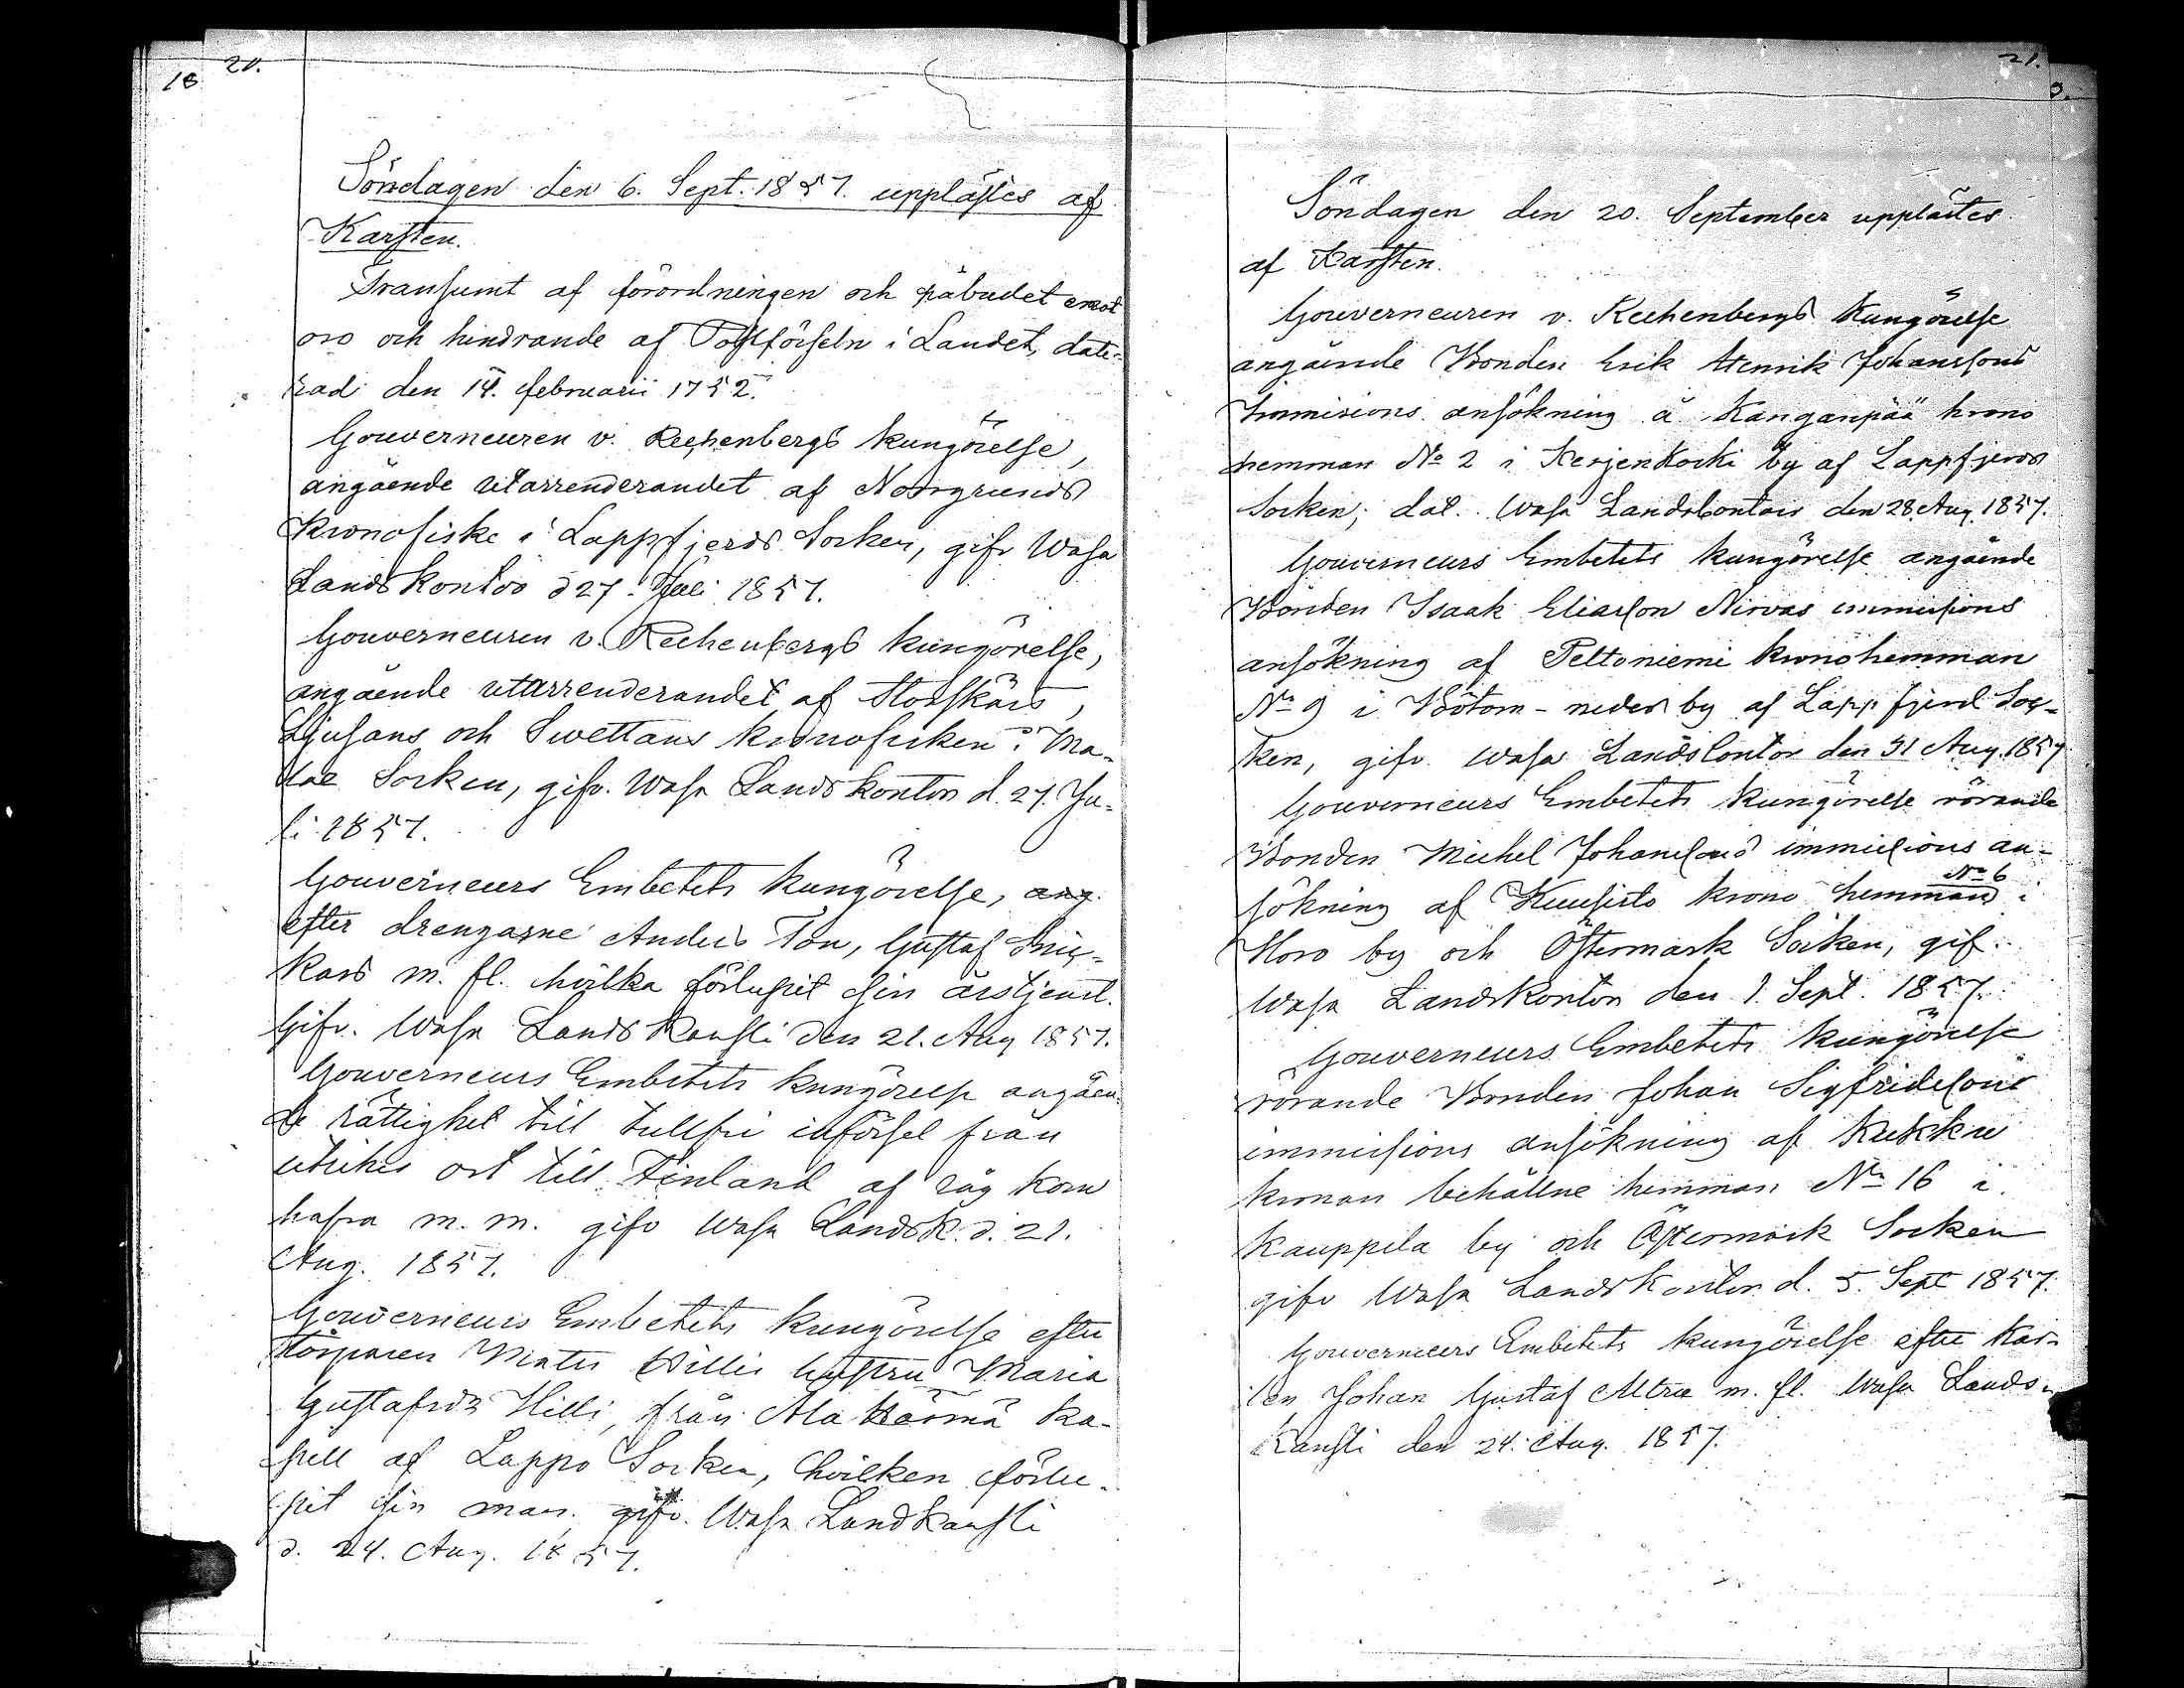 18
20.
Söndagen den 6. Sept. 1857. upplästes af
Karsten.
Transumt af förordningen och påbudet emot
oro och hindrande af Postförseln i Landet, date-
rad den 14. februarii 1752.
Gouverneuren v. Rechenbergs kungörelse,
angående utarrenderandet af Norrgrunds
kronofiske i Lappfjerds Socken, gifv Wasa
Landskontor d 27 Juli 1857.
Gouverneuren v. Rechenbergs kungörelse,
angående utarrenderandet af Storskärs,
Ljusans och Swettans kronofisken i Ma-
lax Socken, gifv. Wasa Landskontor d. 27. Ju-
li 1857.
Gouverneurs Embetets kungörelse, ang.
efter drengarne Anders Ton, Gustaf
kars m. fl. hvilka förlupit sin årstjenst.
Gifv. Wasa Landskansli den 21. Aug 1857.
Gouverneurs Embetets kungörelse angåen-
de rättighet till tullfri införsel från
utrikes ort till Finland af råg korn
hafra m. m. gifv Wasa Landsk. d. 21.
Aug. 1857.
Gouverneurs Embetets kungörelse efter
Torparen Matts Hillis hustru Maria
Gustafsdr Hilli, från Ala Härmä Ka-
pell af Lappo Socken, hvilken förlu-
pit sin man. gifv. Wasa Landkansli
d. 24. Aug. 1857.
21.
Söndagen den 20. September upplästes
af Karsten.
Gouverneuren v. Rechenbergs Kungörelse
angående Bonden Erik Henrik Johanssons
Immissions ansökning å Kanganpää krono
hemman No 2 i Kerjenkoski by af Lappfjerds
Socken; dat. Wasa Landscontoir den 28. Aug. 1857.
Gouverneurs Embetets kungörelse angående
Bonden Isaak Eliasson Nirvas immissions
ansökning af Peltoniemi kronohemman
No 9 i Bötom-neder by af Lappfjerd Soc-
ken, gifv. Wasa Landscontor den 31 Aug. 1857
Gouverneurs Embetets kungörelse rörande
Bonden Michel Johanssons immissions an-
sökning af Kuusisto krono hemman No 6 i
Horo by och Östermark Socken, gif.
Wasa Landskontor den 1. Sept. 1857.
Gouverneurs Embetets kungörelse
rörande Bonden Johan Sigfridssons
immissions ansökning af Kukku
kronan behållne hemman No 16 i
Kauppila by och Östermark Socken
gifv Wasa Landskontor d. 5. Sept 1857.
Gouverneurs Embetets kungörelse efter Kar-
len Johan Gustaf m. fl. Wasa Lands-
Kansli den 24. Aug. 1857.